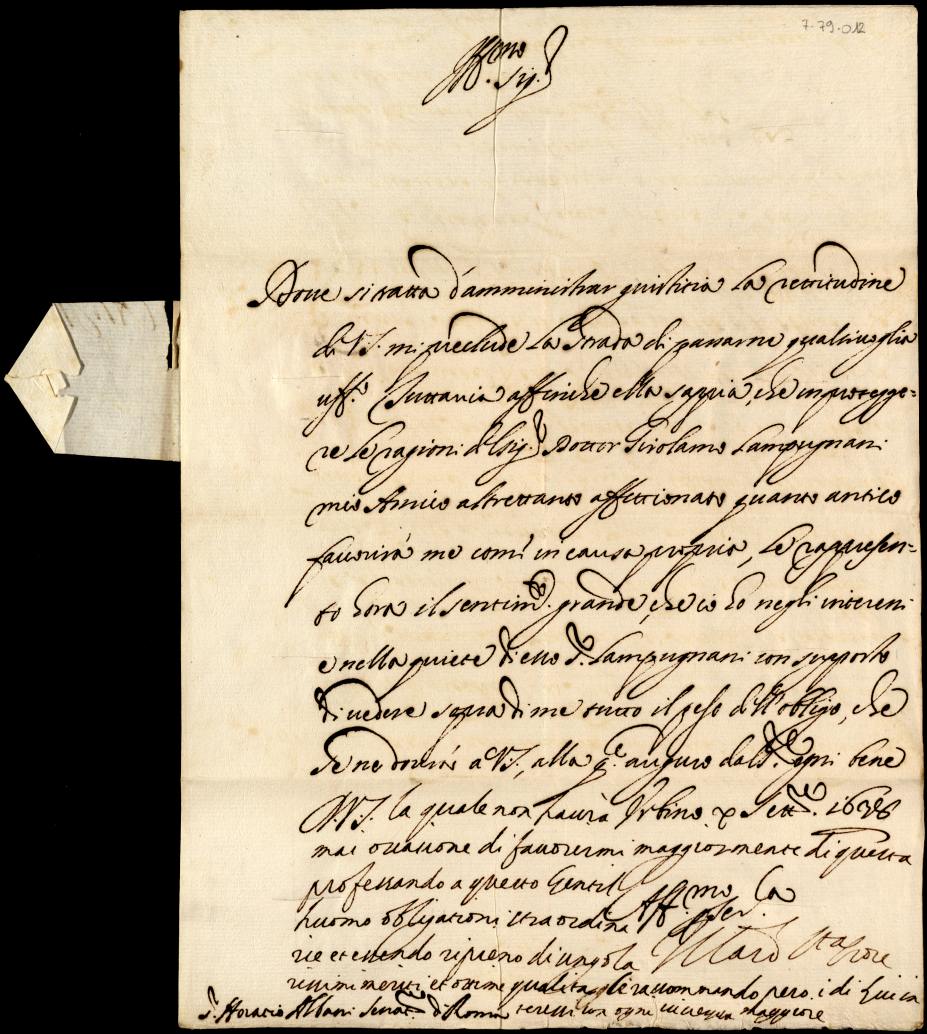 7-79-012
Ill.mo Sig.r
Doue si tratta d'amministrar giustitia la rettitudine
di V.S. mi preclude la strada di passarne qualsiuoglia
uff.o Tuttauia affinche ella sappia, che in protegge-
re le ragioni del Sig.r Dottor Girolamo Lampugnani
mio Amico altrettanto affettionato quanto antico
fauorirà me com' in causa propria, le rappresen-
to hora il sentim.to grande, che io ho negli interessi
e nella quiete di esso S.r Lampugnani con supposto
di uedere sopra di me tutto il peso dell'obligo, che
se ne dourà à V.S., alla q.le auguro dal S.re ogni bene
D.V.S. la quale non haurà Urbino x Sett.re 1638
mai occasione di fauorirmi maggiormente di questa
professando a questo Gentil
huomo obligationi straordina Aff.mo
rie et essendo ripieno di singola
rissimi meriti et ottime qualità gle raccommando pero i di lui in
S.r Horatio Albani Senat.re di Roma teressi con ogni maggiore